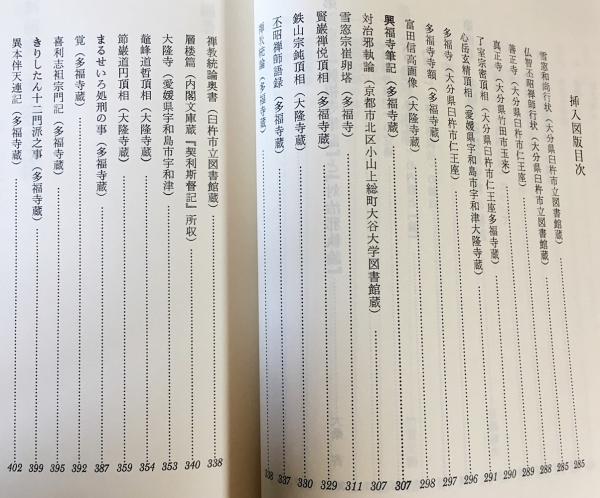 挿入図版目次
雪窓和尚行状（大分県臼杵市立図書館蔵）……285
仏智丕昭禅師行状（大分県臼杵市立図書館蔵）……285
善正寺（大分県臼杵市仁王座）……288
真正寺（大分県竹田市玉来）……289
了室宗密頂相（大分県臼杵市仁王座多福寺蔵）……290
心岳玄精頂相（愛媛県宇和島市宇和津大隆寺蔵）……291
多福寺（大分県臼杵市仁王座）……296
多福寺寺額（多福寺蔵）……297
富田信高画像（大隆寺蔵）……298
興福寺筆記（多福寺蔵）……307
対治邪執論（京都市北区小山上総町大谷大学図書館蔵）……307
雪窓宗崔卵塔（多福寺）……311
賢巌禅悦頂相（多福寺蔵）……329
鉄山宗鈍頂相（大隆寺蔵）……330
丕昭禅師語録（多福寺蔵）……337
禅教統論（多福寺蔵）……338
禅教統論奥書（臼杵市立図書館蔵）……338
層楼篇（内閣文庫蔵『契利斯督記』所収）……340
大隆寺（愛媛県宇和島市宇和津）……353
竜峰道哲頂相（大隆寺蔵）……354
節巌道円頂相（大隆寺蔵）……359
まるせいろ処刑の事（多福寺蔵）……387
覚（多福寺蔵）……392
喜利志祖宗門記（多福寺蔵）……395
きりしたん十二門派之事（多福寺蔵）……399
異本伴天連記（多福寺蔵）……402